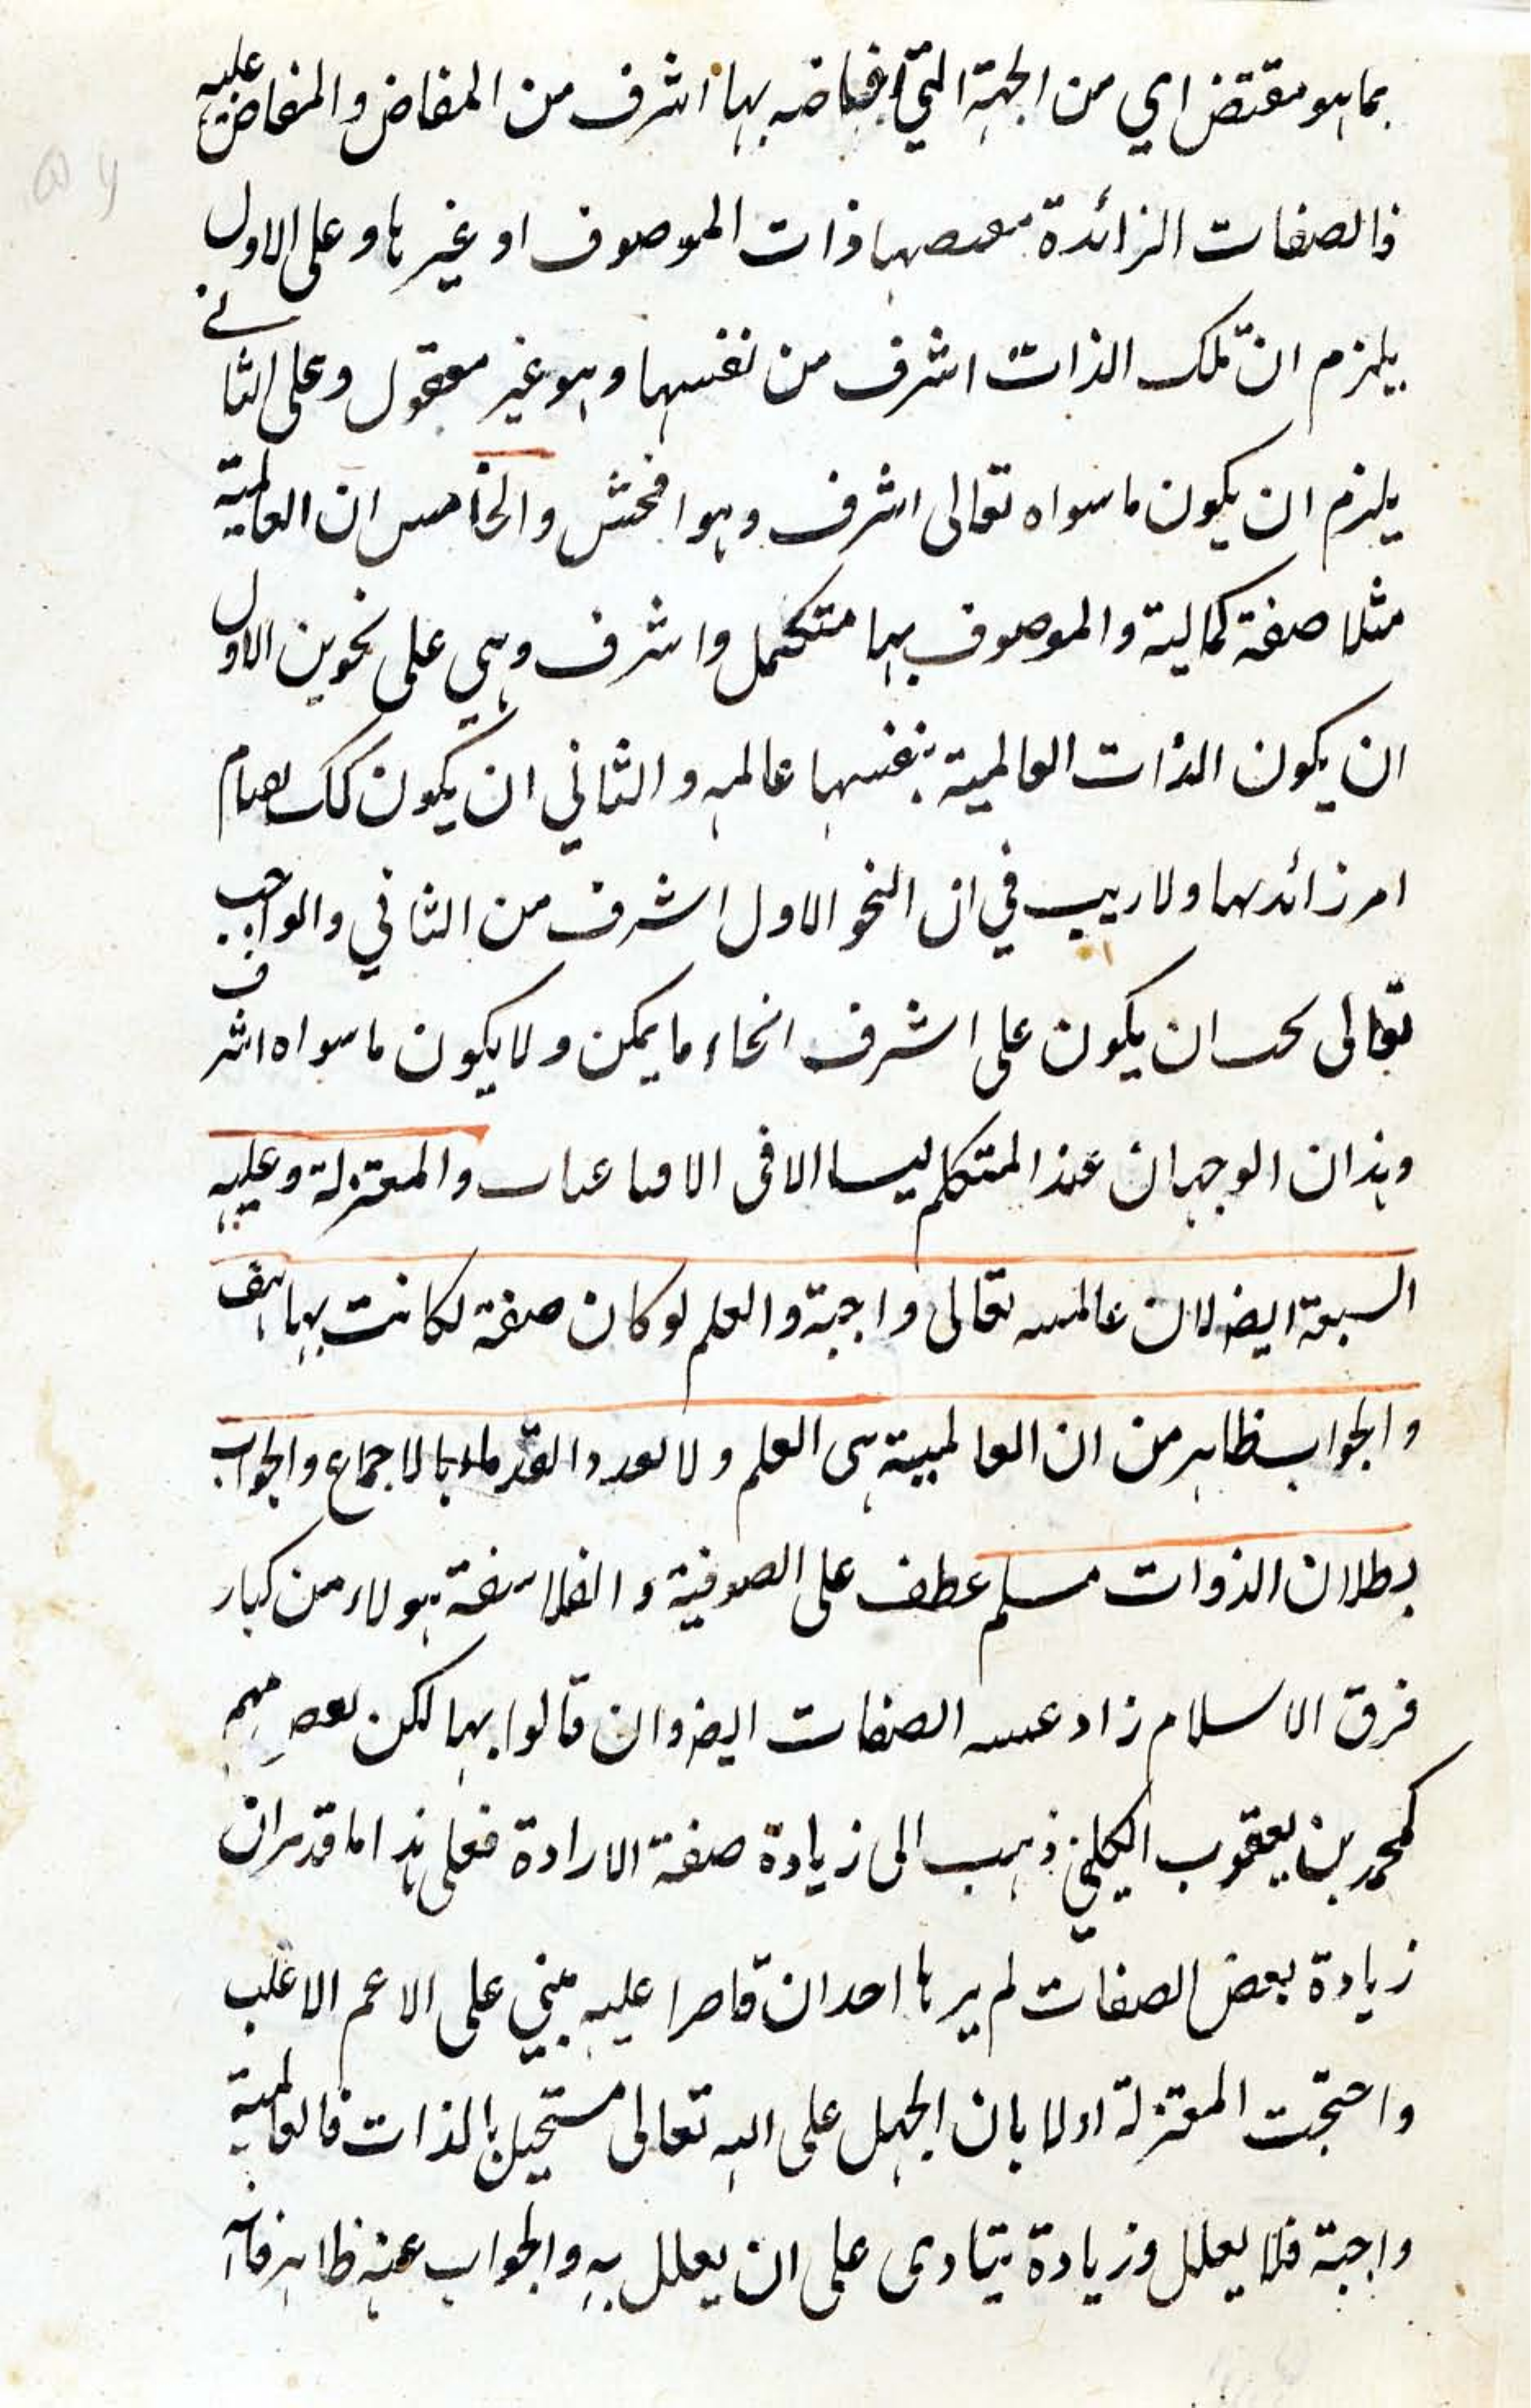 بما هو مقتض اي من الجهة التي افاضه بها اشرف من المفاض والمفاض عليه
فالصفات الزائدة مقتضيها ذات الموصوف او غيرها وعلى الاول
يلزم ان تلك الذات اشرف من نفسها وهو غير معقول وعلى الثاني
يلزم ان يكون ما سواه تعالى اشرف وهو افحش والخامس ان العالمية
مثلا صفة كمالية والموصوف بها متكمل واشرف وهي على نحوين الاول
ان يكون الذات العالمية بنفسها عالمه والثاني ان يكون كك بقيام
امر زائد بها ولا ريب في ان النحو الاول اشرف من الثاني والواجب
تعالى يجب ان يكون على اشرف انحاء ما يمكن ولا يكون ما سواه اشرف
وهذان الوجهان عند المتكلم ليسا الا في الاقناعيات والمعتزلة وعليه
السبعة ايض لان عالميته تعالى واجبة والعلم لو كان صفة لكانت بها هف
والجواب ظاهر من ان العالمية هي العلم ولا تعدد القدماء بالاجماع والجواب
بطلان الذوات مسلم عطف على الصوفية والفلاسفة هولاء من كبار
فرق الاسلام زاد عينية الصفات ايض وان قالوا بها لكن بعض منهم
كمحمد بن يعقوب الكليني ذهب الى زيادة صفة الارادة فعلى هذا ما قد مر ان
زيادة بعض الصفات لم يرها احد ان قاصرا عليه مبني على الاعم الاغلب
واحتجت المعتزلة اولا بان الجهل على الله تعالى مستحيل بالذات فالعالمية
واجبة فلا يعلل وزيادة يتادى على ان يعلل به والجواب عنه ظاهر فانه